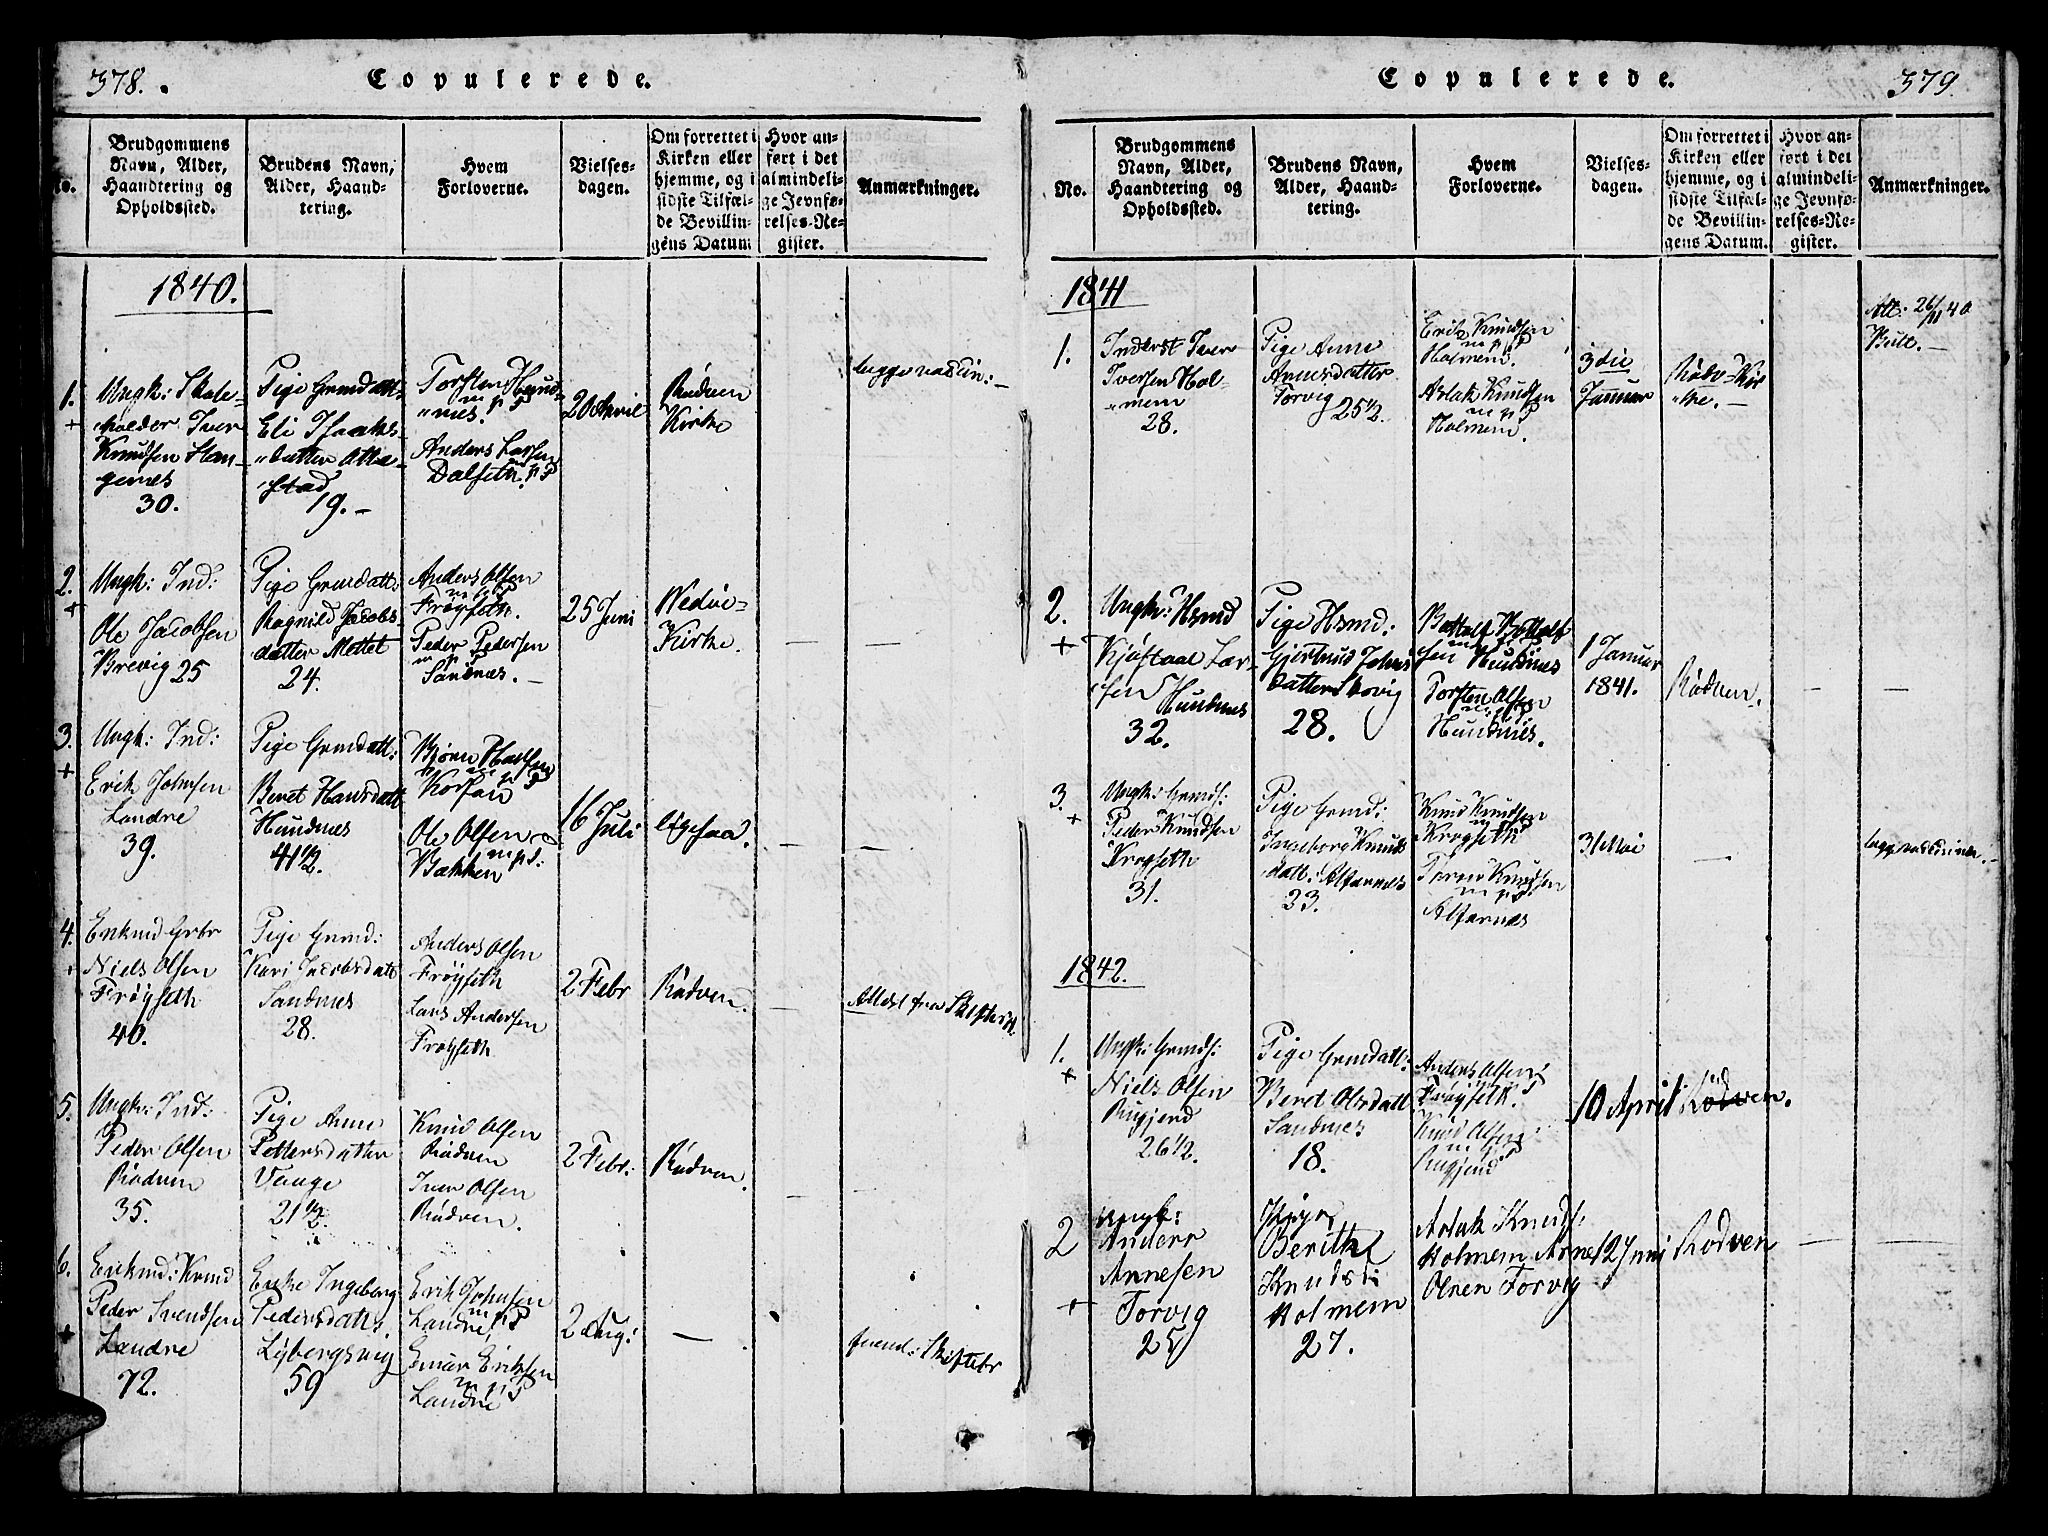 378.
Copulerede.
No.
Brudgommens
Navn, Alder,
Haandtering og
Opholdssted.
Brudens Navn,
Alder, Haand-
tering.
Hvem
Forloverne.
Vielses-
dagen.
Om forrettet i
Kirken eller
hjemme, og i
sidste Tilfæl-
de Bevillin-
gens Datum
Hvor an-
ført i det
almindeli-
ge Jevnfø-
relses-Re-
gister.
Anmærkninger.
1840.
1.
+
Ungk: Skole-
holder Iver
Knudsen Han-
genes
30.
Pige Grmdatt:
Eli Isaaks-
datter
stad
19.-
Torsten Hund-
nes. m p P
Anders Larsen
Dalseth. m p P
20 April
Rødven
Kirke
2.
+
Ungk: Ind:
Ole Jacobsen
Brevig 25
Pige Grmdatt:
Ragnild Jacobs
datter Mettet
24.
Anders Olsen
m p P
Frøyseth.
Peder Pedersen
m p P
Sandnes.-
25 Juni
Wedøe-
Kirke.
3.
+
Ungk: Ind:
Erik Johnsen
Landre
39.
Pige Grmdatt:
Beret Hansdatt
Hundnes
41½.
Bjørn
m p P
Ole Olsen
Bakken m p P:
16 Juli
ligesaa.
4.
Enkmd
Niels Olsen
Frøyseth
40.
Pige Grmd:
Kari Jacobsdatt
Sandnes
28.
Anders Olsen
Frøyseth
Lars Andersen
Frøyseth
2 Febr
Rødven.
Attest fra
5.
Ungk: Ind:
Peder Olsen
Rødven
35.
Pige Anne
Pettersdatter
Vange
21½.
Knud Olsen
Rødven
Iver Olsen
Rødven.
2 Febr:
Rødven.
6.
+
Enkmd:
Peder Svendsen
Landre
72.
Enke Ingeborg
Pedersdatt:
Lybergsvig
59
Erik Johnsen
m p P
Landre,
Einar Eriksen
m p P
Landre
2 Aug:
379
Copulerede.
No.
Brudgommens
Navn, Alder,
Haandtering og
Opholdssted.
Brudens Navn,
Alder, Haand-
tering.
Hvem
Forloverne.
Vielses-
dagen.
Om forrettet i
Kirken eller
hjemme, og i
sidste Tilfæl-
de Bevillin-
gens Datum.
Hvor an-
ført i det
almindeli-
ge Jevnfø-
relses-Re-
gister.
Anmærkninger.
1841
1.
Inderst Iver
Iversen Hol-
mem
28.
Pige Anne
Arnesdatter
Torvig
25½.
Erik Knudsen
m p P
Holmem.
Aslak Knudsen
m p P
Holmem.
3die
Januar
Rødv: Kir
ke.-
Att: 26/11 40
2.
+
Ungk: Hsmd
Kjøstaal Lar-
sen Hundnes
32.
Pige Hsmd:
Gjertrud Johns
datter Skovig
28.
Bottolf Bottolf
sen Hundnes
Torsten Olsen
m p P
Hundnes.
1 Januar
1841.
Rødven.
3.
+
Ungk: Grmds:
Peder Knudsen
Krogseth
31.
Pige Grmd:
Ingeborg Knuds
datt: Alfarnes
23.
Knud Knudsen
m p P
Krogseth
Knudsen
m p P
Alfarnes
31 Mai
1842.
1.
+
Ungk: Grmds:
Niels Olsen
Rugjerd
26½.
Pige Grmdatt:
Beret Olsdatt
Sandnes
18.
Anders Olsen
Frøyseth.
Knud Olsen
m p P
Rugjerd
10 April
Rødven.
2
+
Ungk:
Anders
Arnesen
Torvig
25
Pige
Berith
Knudsd:
Holmem
27.
Aslak Knuds:
Holmem Arne
Olsen Torvig
12 Juni
Rødven